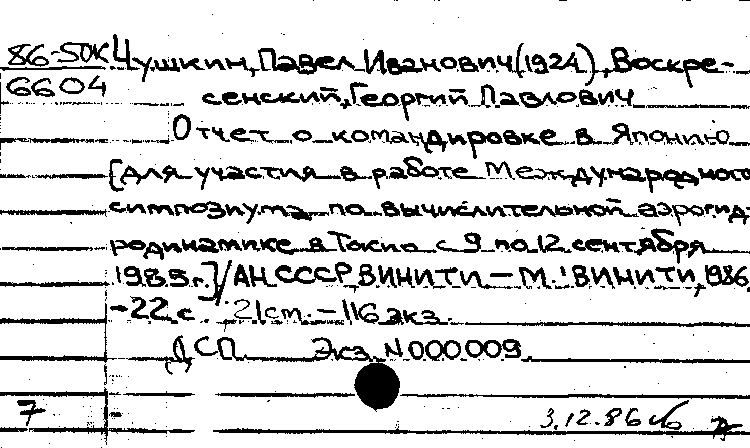 86-50К Чушкин, Павел Иванович (1924), Воскре-
6604 сенский, Георгий Павлович
Отчет о командировке в Японию
[для участия в работе Международного
симпозиума по вычислительной аэрогид-
родинамике в Токио с 9 по 12 сентября
1985 г.] / АН СССР, ВИНИТИ – М.: ВИНИТИ, 1986,
-22 с. 21 см. – 116 экз.
ДСП Экз. N000009.
7
3.12.86